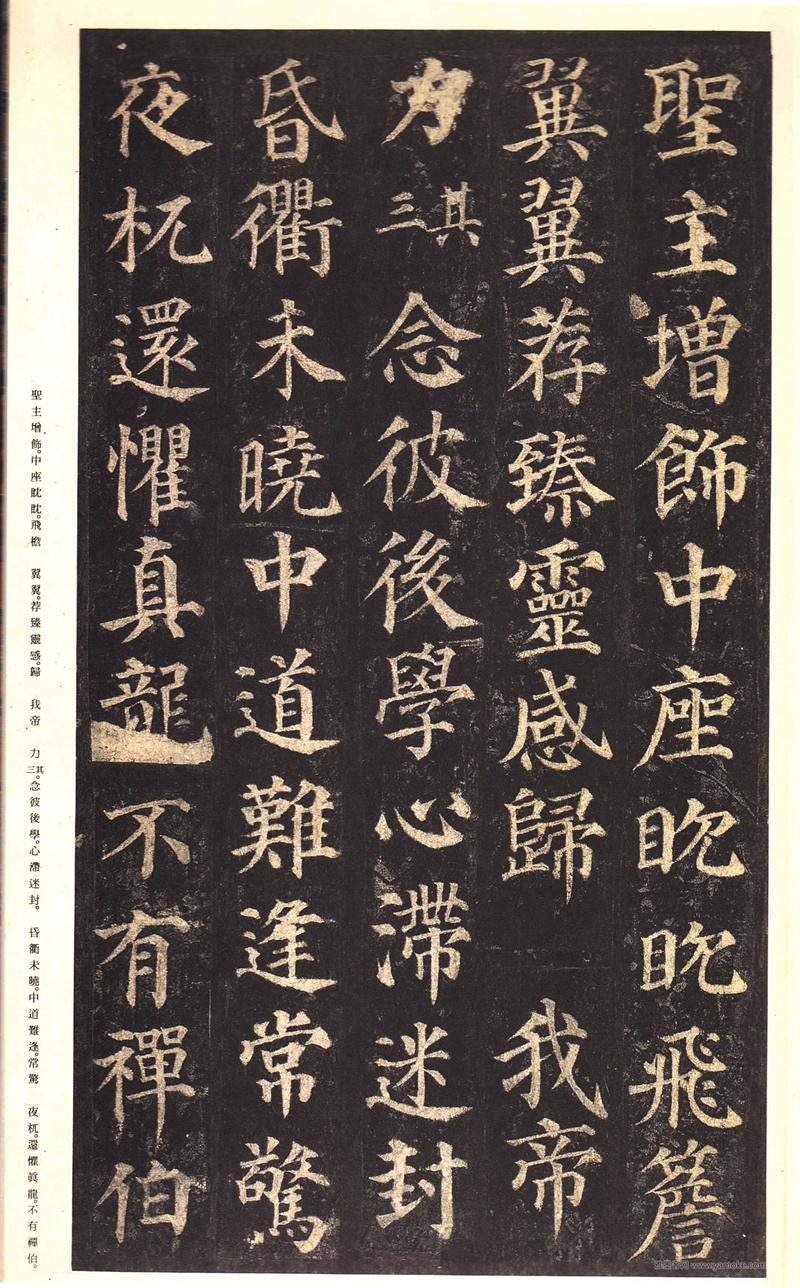 聖主增飾中座眈眈飛簷
翼翼荐臻靈感歸 我帝
力其三念彼後學心滯迷封
昏衢未曉中道難逢常驚
夜杌還懼真龍不有禪伯
聖主增飾。中座眈眈。飛檐 翼翼。荐臻靈感。歸 我帝 力其三。念彼後學。心滯迷封。 昏衢未曉。中道難逢。常驚 夜杌。還懼眞龍。不有禪伯。
www.yamoke.com